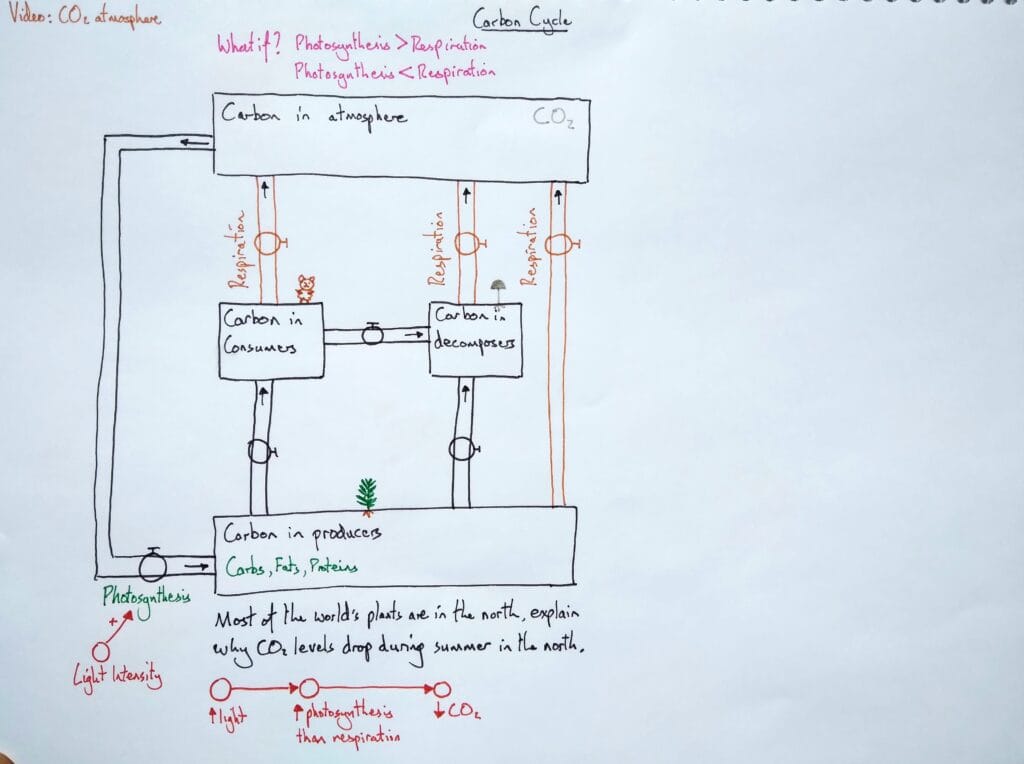 Video: CO₂ atmosphere
Carbon Cycle
What if? Photosynthesis > Respiration
Photosynthesis < Respiration
Carbon in atmosphere
CO₂
Respiration
Respiration
Respiration
Carbon in
Consumers
Carbon in
decomposers
Carbon in producers
Carbs, Fats, Proteins
Photosynthesis
+
Light Intensity
Most of the world's plants are in the north, explain
why CO₂ levels drop during summer in the north.
↑light
↑photosynthesis
than respiration
↓CO₂